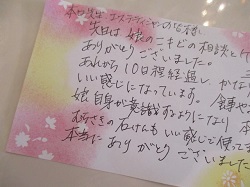 先日は 娘のニキビの相談と
ありがとうございました。
あれから10日程経過し、かなり
いい感じになっています。
娘自身が意識するようになり
石けんもいい感じで使って
本当に ありがとうございました